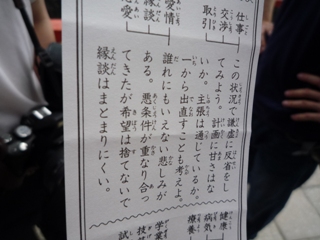 仕事
交渉
取引
この状況で謙虚に反省をし
てみよう。計画に甘さはな
いか。主張は通じているか。
一から出直すことも考えよ。
愛情
縁談
恋愛
誰れにもいえない悲しみが
ある。悪条件が重なり合っ
てきたが希望は捨てないで
縁談はまとまりにくい。
健康
病気
療養
学業
技
試